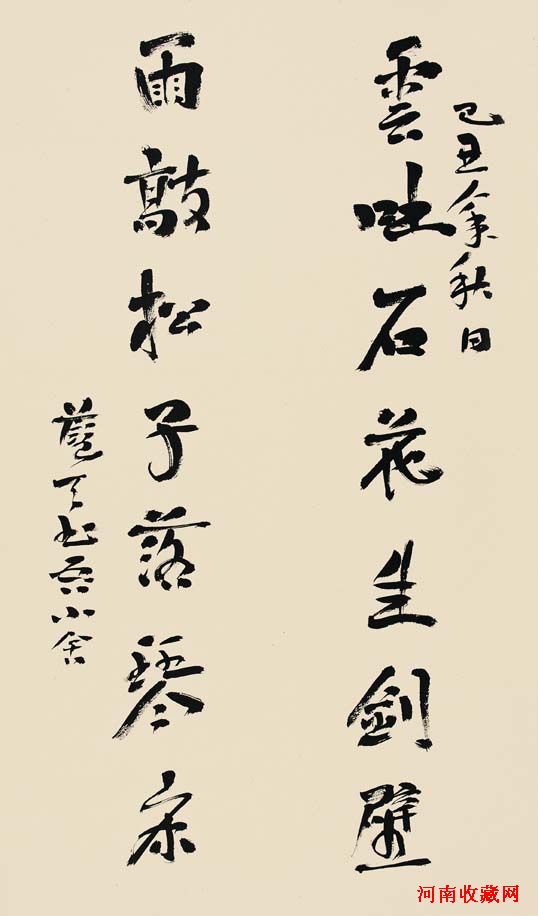 己丑秋日
雲吐石花生劍壁
雨敲松子落琴床
书小舍
河南收藏网